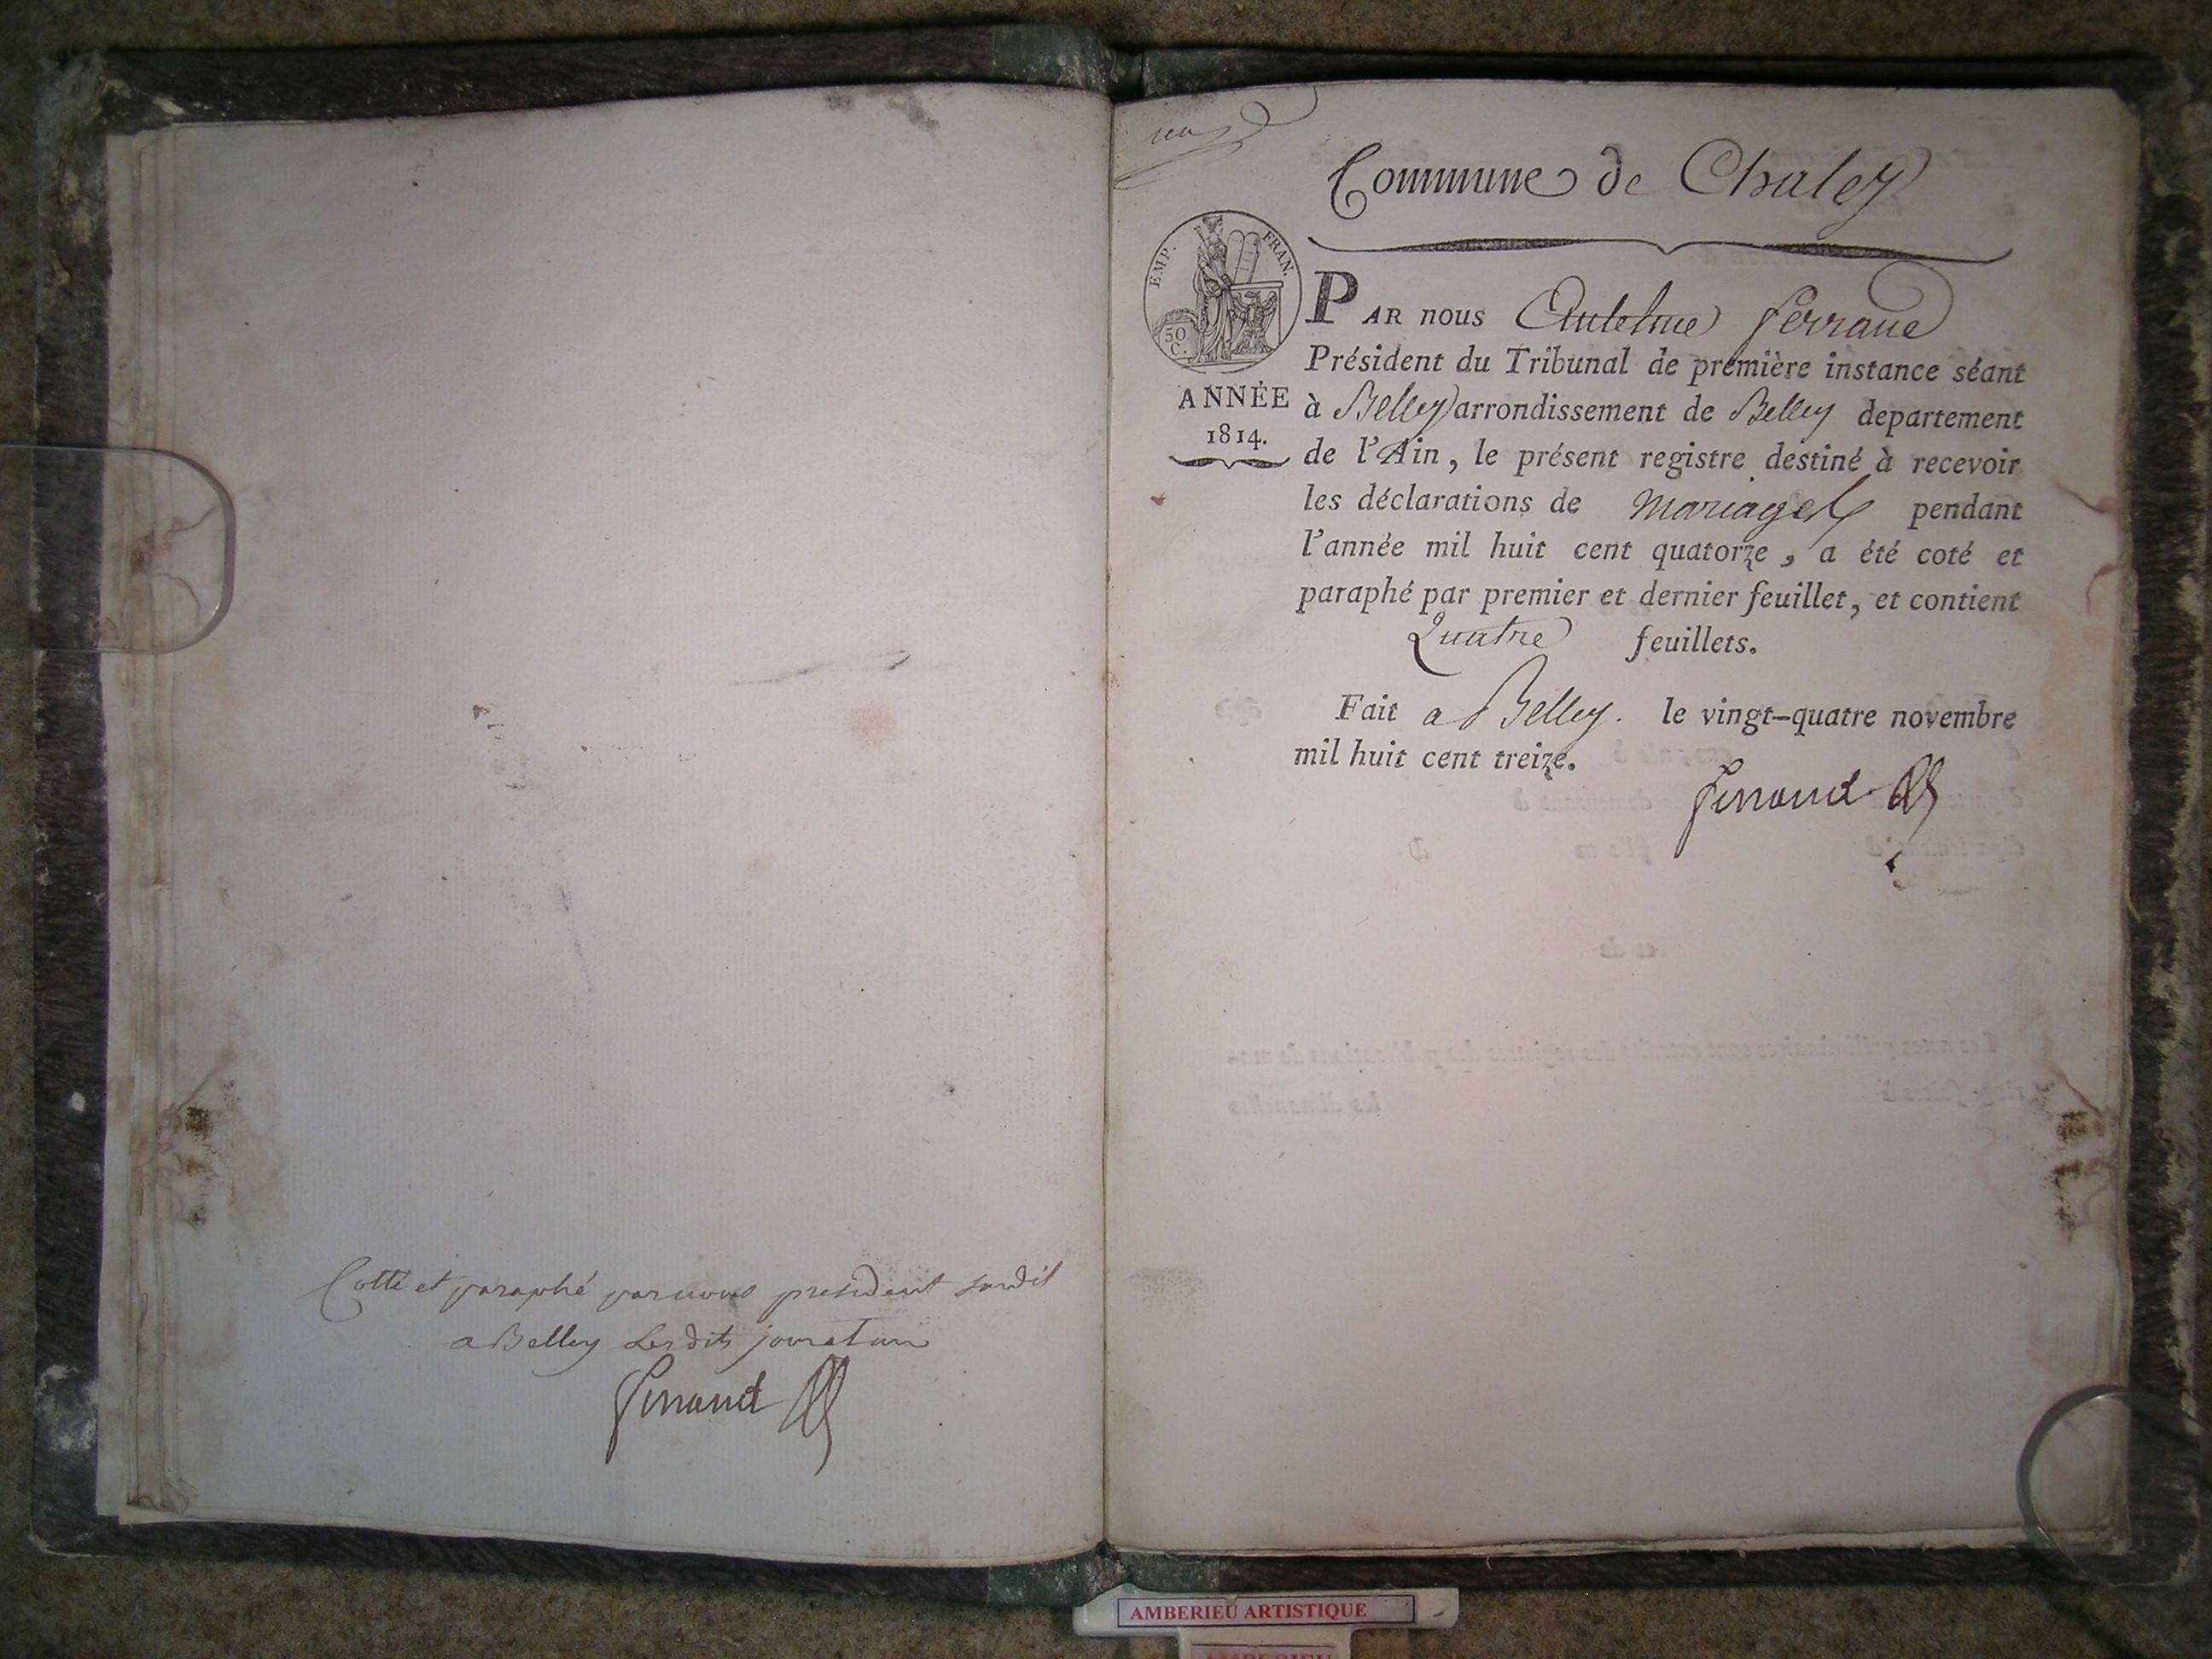 Cotté et paraphé par nous president susdit
a Belley lesdits jour et an
ferrand
un
Commune de Chaley
EMP. FRAN.
50 C.
ANNÉE
1814.
PAR nous Antelme ferrand
Président du Tribunal de première instance séant
à Belley arrondissement de Belley departement
de l'Ain, le présent registre destiné à recevoir
les déclarations de mariages pendant
l'année mil huit cent quatorze, a été coté et
paraphé par premier et dernier feuillet, et contient
Quatre feuillets.
Fait a Belley. le vingt-quatre novembre
mil huit cent treize.
ferrand
AMBERIEU ARTISTIQUE
AMBERIEU